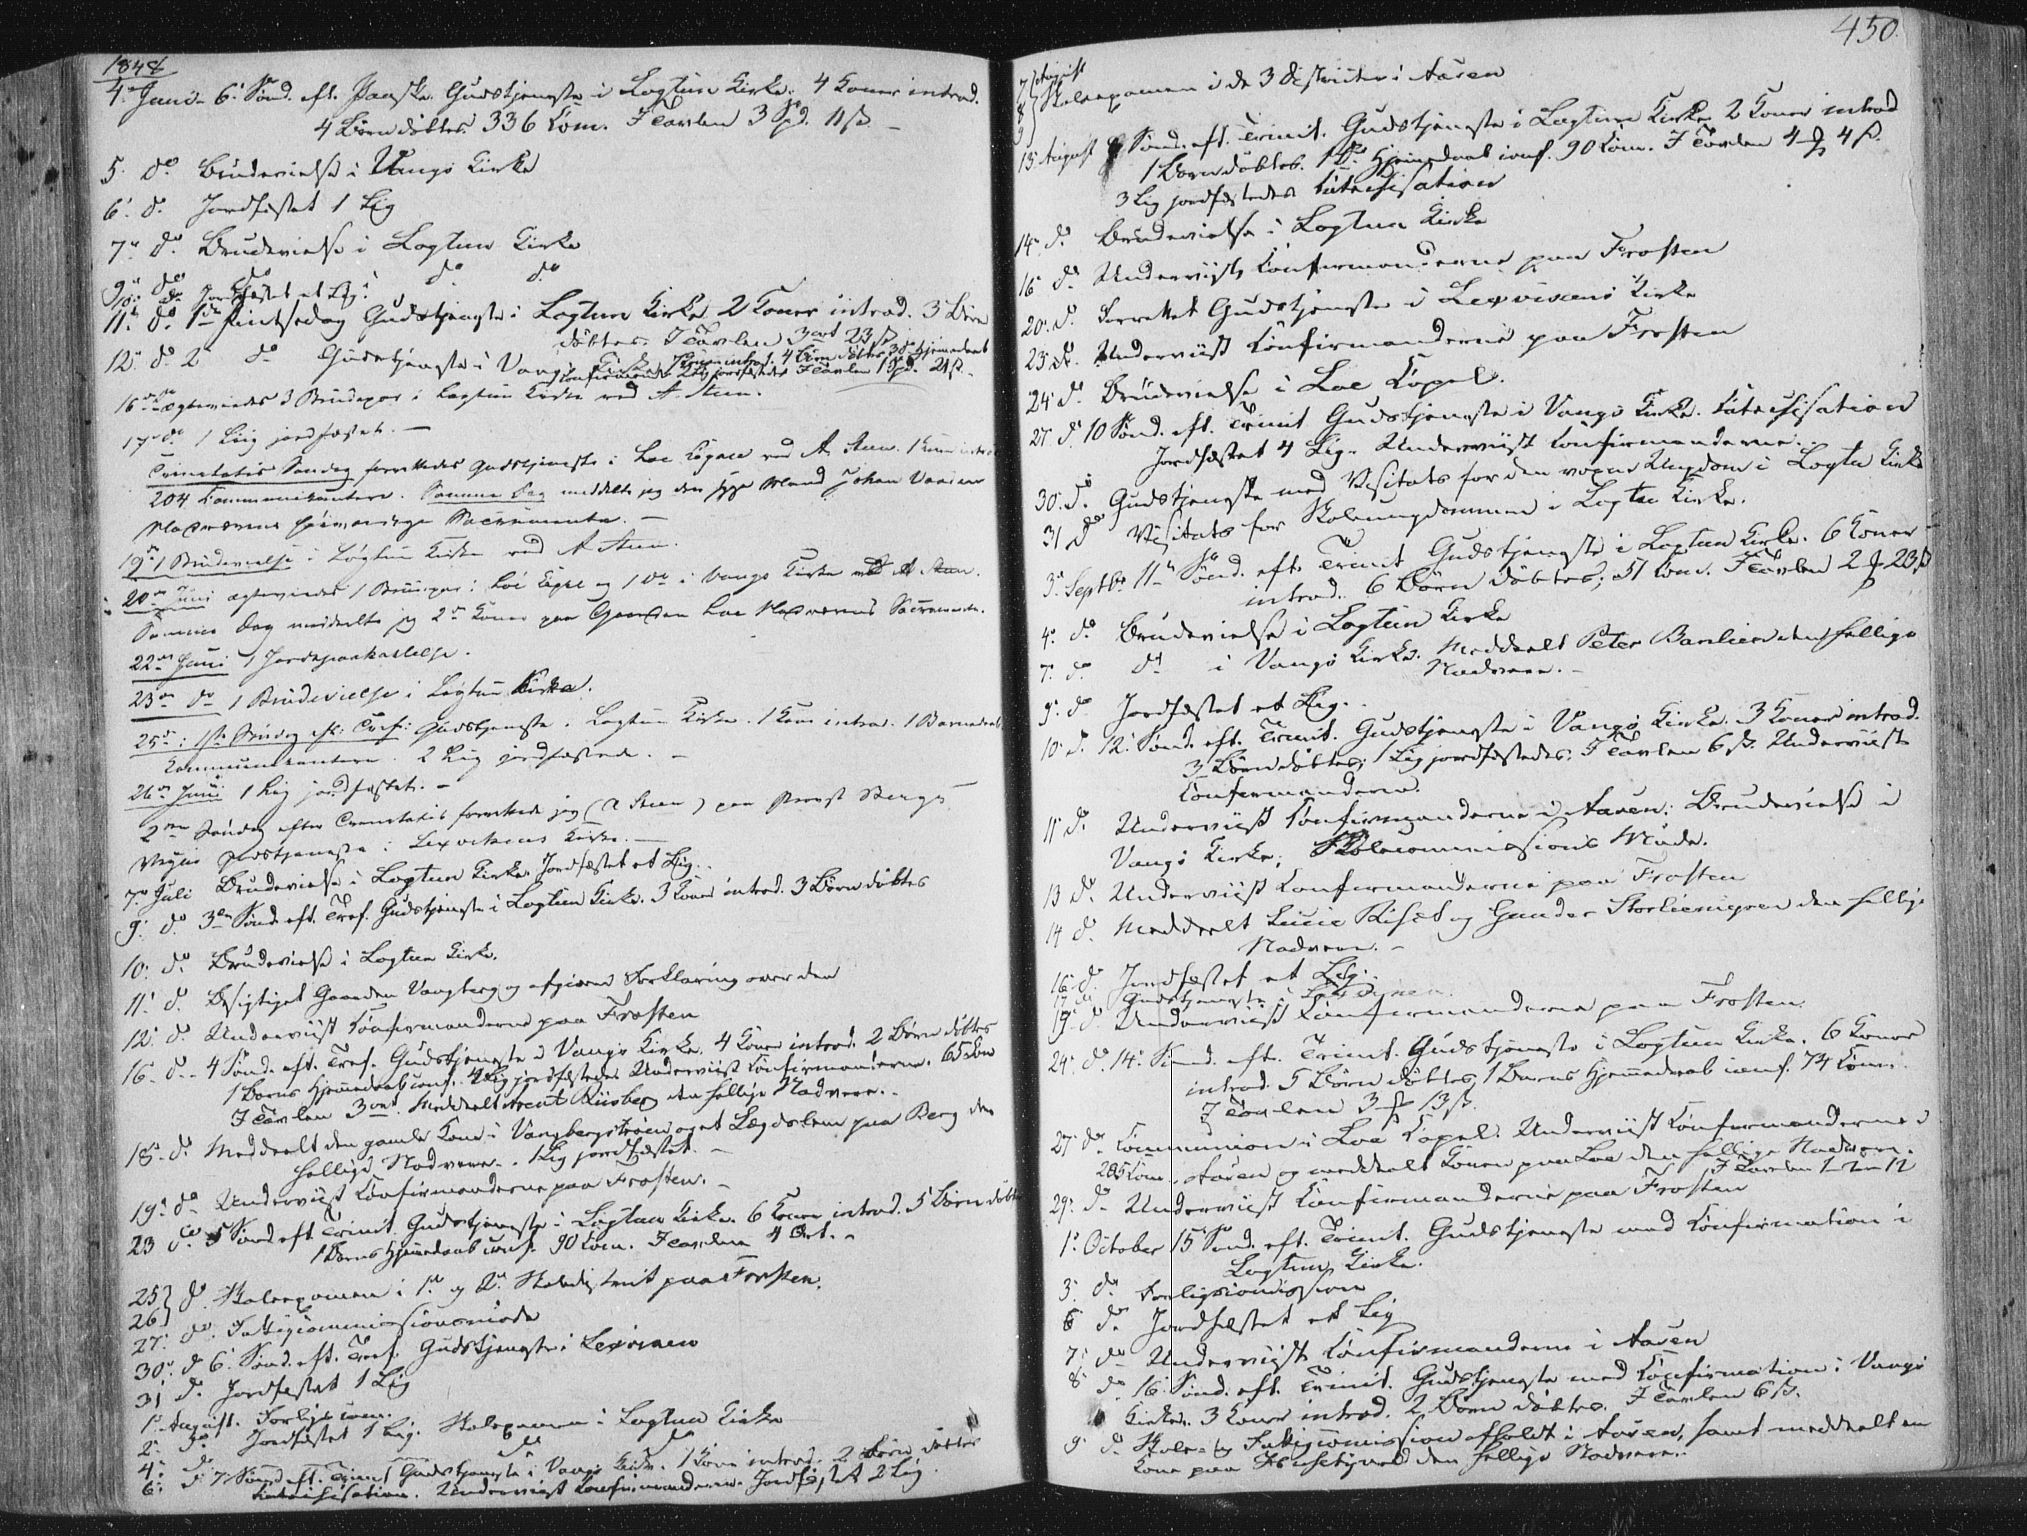 1848
4. Juni 6. Sønd. eft. Paaske Gudstjeneste i Logtun Kirke. 4 Koner introd.
4 Børn døbtes. 336 Com. I Tavlen 3 Spd. 11 ß
5. do Brudevielse i Vangs Kirke
6. do Jordfæstet 1 Lig
7. do Brudevielse i Logtun Kirke
9. do do do do
10. do Jordfæstet et Lig
11. do 1ste Pintsedag Gudstjeneste i Logtun Kirke 2 Koner introd. 3 Børn
døbtes. I Tavlen 3 ort 23 ß
12. do 2 do Gudstjeneste i Vangs Kirke, Koner introd. 4 Børn døbtes 3 do hjemmedaab
confirmerede Lig jordfæstedes I Tavlen 1 Spd. 21 ß.
16 do ægteviedes 3 Brudepar i Logtun Kirke ved A Steen.
17 do 1 Liig jordfæstet.
Trinitatis Søndag forrettedes Gudstjeneste i Loe Capel ved A Steen. 1 Kone introd
204 Kommunikantere. Samme Dag meddelte jeg den syge Mand Johan
Alterens høiværdige Sacramente.
19 1 Brudevielse i Logtun Kirke ved A Steen.
20 Juni ægteviedes 1 Brudepar i Loe Capel og 1 do i Vangs Kirke ved A Steen.
Samme Dag meddelte jeg 2de Koner paa Gaarden Loe Alterens Sacramente.
22 Juni 1 Jordspaakastelse.
23 do 1 Brudevielse i Logtun Kirke.
25: 1ste Søndag eft: Tref: Gudstjeneste. Logtun Kirke. 1 Kone introd. 1 Barnedaab
Kommunikantere. 2 Liig jordfæstede.
26 Juni 1 Lig jordfæstet.
2den Søndag efter Trinitatis forrettede jeg (A Steen) paa Provst
Vegne Gudstjeneste i Lexvikens Kirke.
7. Juli Brudevielse i Logtun Kirke, Jordfæstet et Lig.
9. do 3die Sønd. eft. Tref. Gudstjeneste i Logtun Kirke. 3 Koner introd. 3 Børn døbtes
10. do Brudevielse i Logtun Kirke.
11. do Besigtiget Gaarden Vangberg og afgiven Forklaring over den
12. do Underviist Confirmanderne paa Frosten
16. do 4 Sønd. eft. Tref. Gudstjeneste i Vangs Kirke. 4 Koner introd. 2 Børn døbtes
1 Barns Hjemmedaab conf. Lig jordfæstedes Underviist Confirmanderne. 65 Com
I Tavlen 3 ort. Meddeelt den hellige Nadvere.
18. do Meddeelt den gamle Kone i Vangbergstrøen og et Lægdslem paa Berg den
hellige Nadvere. 1 Lig jordfæstet.
19. do Underviist Confirmanderne paa Frosten.
23 do 5 Sønd. eft. Trinit. Gudstjeneste i Logtun Kirke. 6 Koner introd. 5 Børn døbte
1 Barns Hjemmedaab conf. 90 Com. I Tavlen 4 Ort.
25 } do. Skoleexamen i 1ste og 2. Skoledistrict paa Frosten.
26
27. do. Fattigcommissionsmøde
30. do 6. Sønd. eft. Tref. Gudstjeneste i Lexviken
31 do. Jordfæstet 1 Lig
1. August. Forligscom.
2. do Jordfæstet 1 Lig. Skoleexamen i Logtun Kirke
4. do do do
6. do 7 Sønd. eft. Trinit. Gudstjeneste i Vangs Kirke. 1 Kone introd. 2 Børn døbtes
Katechisation. Underviist Confirmanderne. Jordfæstet 2 Lig.
450.
7 August
8 } Skoleexamen i de 3 Districter i Aasen
9
13. August 8 Sønd. eft. Trinit. Gudstjeneste i Logtun Kirke 2 Koner introd
1 Barn døbtes. 1 do. Hjemmedaab conf. 90 Com. I Tavlen 4 4 ß.
3 Lig jordfæstedes Katechisation
14. do Brudevielse i Logtun Kirke
16. do Underviist Confirmanderne paa Frosten
20. do. Forrettet Gudstjeneste i Lexvikens Kirke
23. do. Underviist Confirmanderne paa Frosten
24. do. Brudevielse i Loe Capel.
27. do 10 Sønd. eft. Trinit Gudstjeneste i Vangs Kirke. Katechisation
Jordfæstet 4 Lig. Underviist Confirmanderne.
30. do Gudstjeneste med Visitats for den voxne Ungdom i Logtu Kirke
31 do Visitats for Skoleungdommen i Logtu Kirke.
3. Septbr. 11te Sønd. eft. Trinit Gudstjeneste i Logtun Kirke. 6 Koner
introd. 6 Børn døbtes; 51 Com. I Tavlen 2 23 ß
4. do Brudevielse i Logtun Kirke
7. do do i Vangs Kirke. Meddeelt Peter Barlien den hellige
Nadvere.
9. do Jordfæstet et Lig.
10. do. 12. Sønd. eft. Trinit. Gudstjeneste i Vangs Kirke. 3 Koner introd.
3 Børn døbtes; 1 Lig jordfæstedes; I Tavlen 6 ß. Underviist
Confirmanderne.
11 do. Underviist Confirmanderne i Aasen; Brudevielse i
Vangs Kirke; Skolecommissions Møde.
13 do Underviist Confirmanderne paa Frosten
14 do. Meddeelt og Gunder den hellige
Nadvere.
16. do. Jordfæstet et Lig.
17. do Gudstjeneste i Lexviken
19. do Underviist Confirmanderne paa Frosten.
24. do. 14. Sønd. eft. Trinit. Gudstjeneste i Logtun Kirke. 6 Koner
introd. 5 Børn døbtes, 1 Barns Hjemmedaab conf. 74 Com.
I Tavlen 3 13 ß.
27. do Communion i Loe Capel. Underviist Confirmanderne i
Aasen og meddeelt Konen paa Loe den hellige Nadvere.
I Tavlen 1 2 12
29. do Underviist Confirmanderne paa Frosten
1. October 15 Sønd. eft. Trinit. Gudstjeneste med Confirmation i
Logtun Kirke.
3. do Forligscommission
6 do. Jordfæstet et Lig
7. do Underviist Confirmanderne i Aasen
8. do 16. Sønd. eft. Trinit. Gudstjeneste med Confirmation i Vangs
Kirke. 3 Koner introd. 2 Børn døbtes. I Tavlen 6 ß.
9. do Skole- og Fattigcommission afholdt i Aasen, samt meddeelt en
Kone paa den hellige Nadvere.